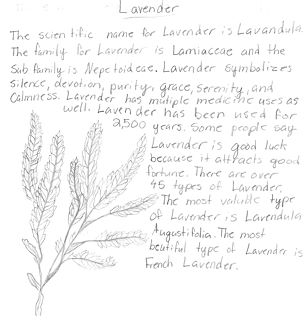 Lavender
The scientific name for Lavender is Lavandula
The family for Lavender is Lamiaceae and the
Sub family is Nepetoideae. Lavender symbolizes
silence, devotion, purity, grace, serenity, and
Calmness. Lavender has multiple medicine uses as
well. Lavender has been used for
2,500 years. Some people say
Lavender is good luck
because it attracts good
fortune. There are over
45 types of Lavender.
The most valuble type
of Lavender is Lavendula
Augustifolia. The most
beutiful type of Lavender is
French Lavender.